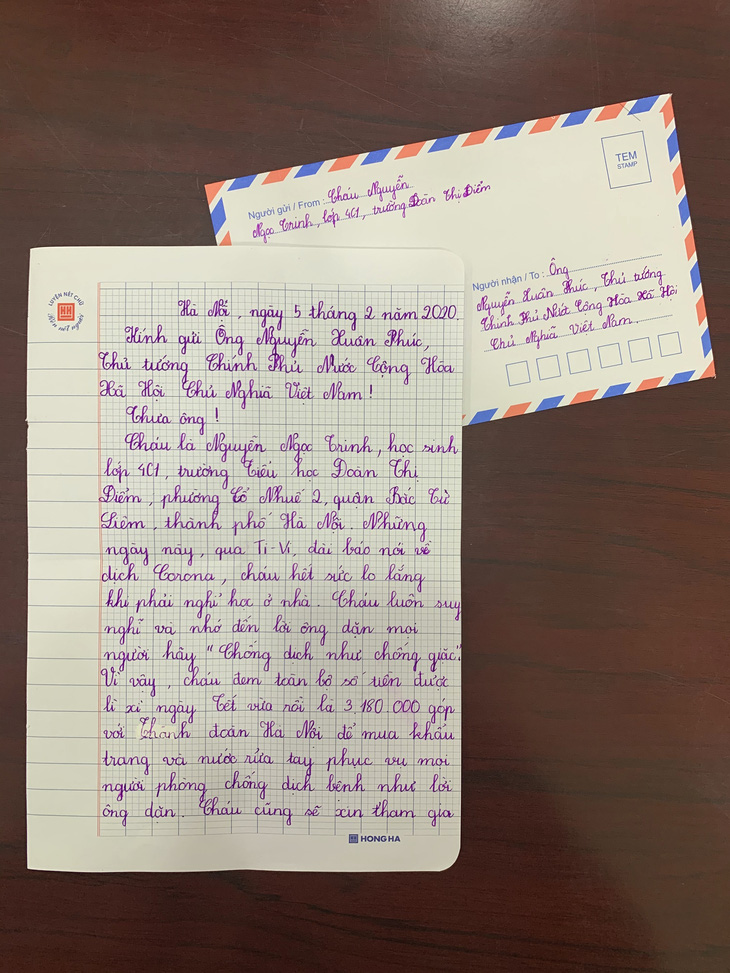 TEM
STAMP
Người gửi / From : Cháu Nguyễn
Ngọc Trinh, lớp 4C1, trường Đoàn Thị Điểm
Người nhận / To : Ông
Nguyễn Xuân Phúc, Thủ tướng
Chính Phủ Nước Cộng Hòa Xã Hội
Chủ Nghĩa Việt Nam.
LUYỆN NÉT CHỮ
HH
Hà Nội, ngày 5 tháng 2 năm 2020.
Kính gửi Ông Nguyễn Xuân Phúc,
Thủ tướng Chính Phủ Nước Cộng Hòa
Xã Hội Chủ Nghĩa Việt Nam !
Thưa ông !
Cháu là Nguyễn Ngọc Trinh, học sinh
lớp 4C1, trường Tiểu học Đoàn Thị
Điểm, phường Cổ Nhuế 2, quận Bắc Từ
Liêm, thành phố Hà Nội. Những
ngày này, qua Ti-Vi, đài báo nói về
dịch Corona, cháu hết sức lo lắng
khi phải nghỉ học ở nhà. Cháu luôn suy
nghĩ và nhớ đến lời ông dặn mọi
người hãy "Chống dịch như chống giặc".
Vì vậy, cháu đem toàn bộ số tiền được
lì xì ngày Tết vừa rồi là 3 180.000 góp
với Thành đoàn Hà Nội để mua khẩu
trang và nước rửa tay phục vụ mọi
người phòng chống dịch bệnh như lời
ông dặn. Cháu cũng sẽ xin tham gia
HONG HA